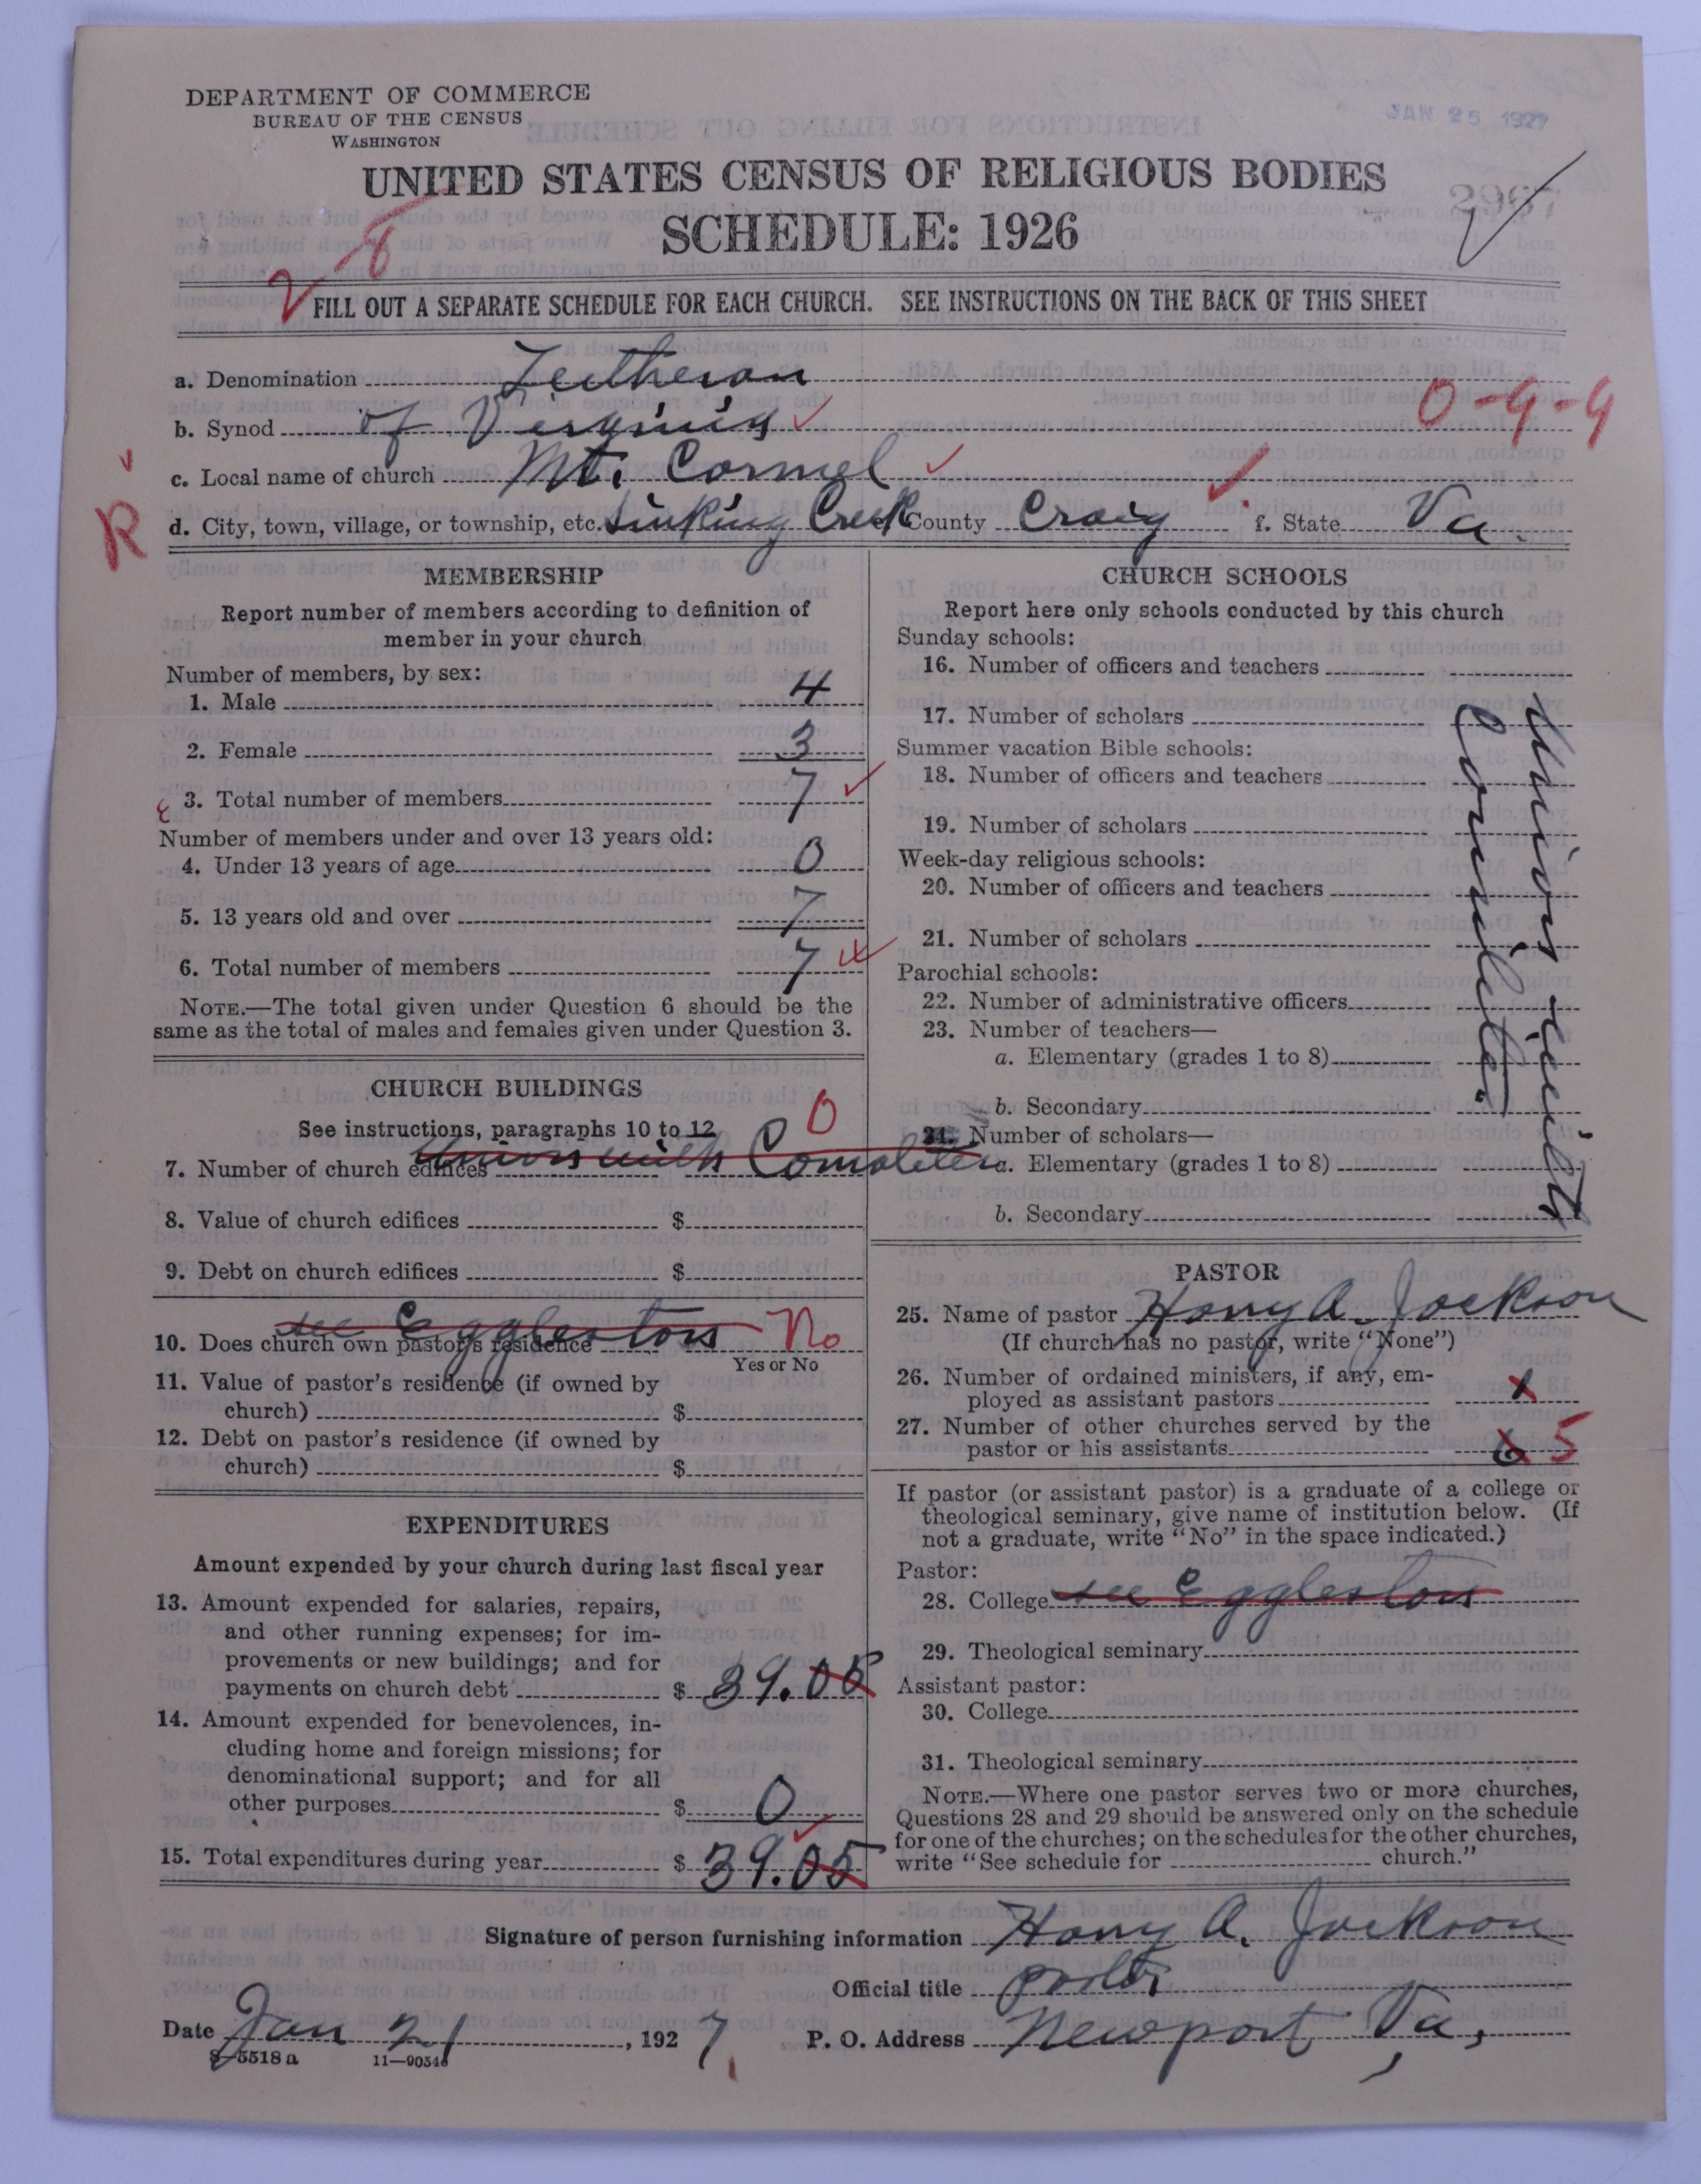 DEPARTMENT OF COMMERCE
BUREAU OF THE CENSUS
WASHINGTON
JAN 25 1927
2967
UNITED STATES CENSUS OF RELIGIOUS BODIES
SCHEDULE: 1926
2-8
FILL OUT A SEPARATE SCHEDULE FOR EACH CHURCH. SEE INSTRUCTIONS ON THE BACK OF THIS SHEET
a. Denomination Lutheran
b. Synod of Virginia
0-9-9
c. Local name of church Mt. Carmel
R
d. City, town, village, or township, etc. Sinking Creek County Craig f. State Va.
MEMBERSHIP
Report number of members according to definition of
member in your church
Number of members, by sex:
1. Male 4
2. Female 3
3. Total number of members 7
Number of members under and over 13 years old:
4. Under 13 years of age 0
5. 13 years old and over 7
6. Total number of members 7
NOTE.—The total given under Question 6 should be the
same as the total of males and females given under Question 3.
CHURCH BUILDINGS
See instructions, paragraphs 10 to 12
0
7. Number of church edifices Union with
8. Value of church edifices $
9. Debt on church edifices $
see Eggleston No
10. Does church own pastor's residence
Yes or No
11. Value of pastor's residence (if owned by
church) $
12. Debt on pastor's residence (if owned by
church) $
EXPENDITURES
Amount expended by your church during last fiscal year
13. Amount expended for salaries, repairs,
and other running expenses; for im-
provements or new buildings; and for
payments on church debt $ 39.05
14. Amount expended for benevolences, in-
cluding home and foreign missions; for
denominational support; and for all
other purposes $ 0
15. Total expenditures during year $ 39.05
CHURCH SCHOOLS
Report here only schools conducted by this church
Sunday schools:
16. Number of officers and teachers
17. Number of scholars
Summer vacation Bible schools:
18. Number of officers and teachers
19. Number of scholars
Week-day religious schools:
20. Number of officers and teachers
21. Number of scholars
Parochial schools:
22. Number of administrative officers
23. Number of teachers—
a. Elementary (grades 1 to 8)
b. Secondary
24. Number of scholars—
a. Elementary (grades 1 to 8)
b. Secondary
Union with
PASTOR
25. Name of pastor Harry A. Jackson
(If church has no pastor, write "None")
26. Number of ordained ministers, if any, em-
ployed as assistant pastors
27. Number of other churches served by the
pastor or his assistants 5
If pastor (or assistant pastor) is a graduate of a college or
theological seminary, give name of institution below. (If
not a graduate, write "No" in the space indicated.)
Pastor:
28. College see Eggleston
29. Theological seminary
Assistant pastor:
30. College
31. Theological seminary
NOTE.—Where one pastor serves two or more churches,
Questions 28 and 29 should be answered only on the schedule
for one of the churches; on the schedules for the other churches,
write "See schedule for church."
Signature of person furnishing information Harry A. Jackson
Official title pastor
Date Jan 21, 1927 P. O. Address Newport, Va,
8—5518 a 11—90546